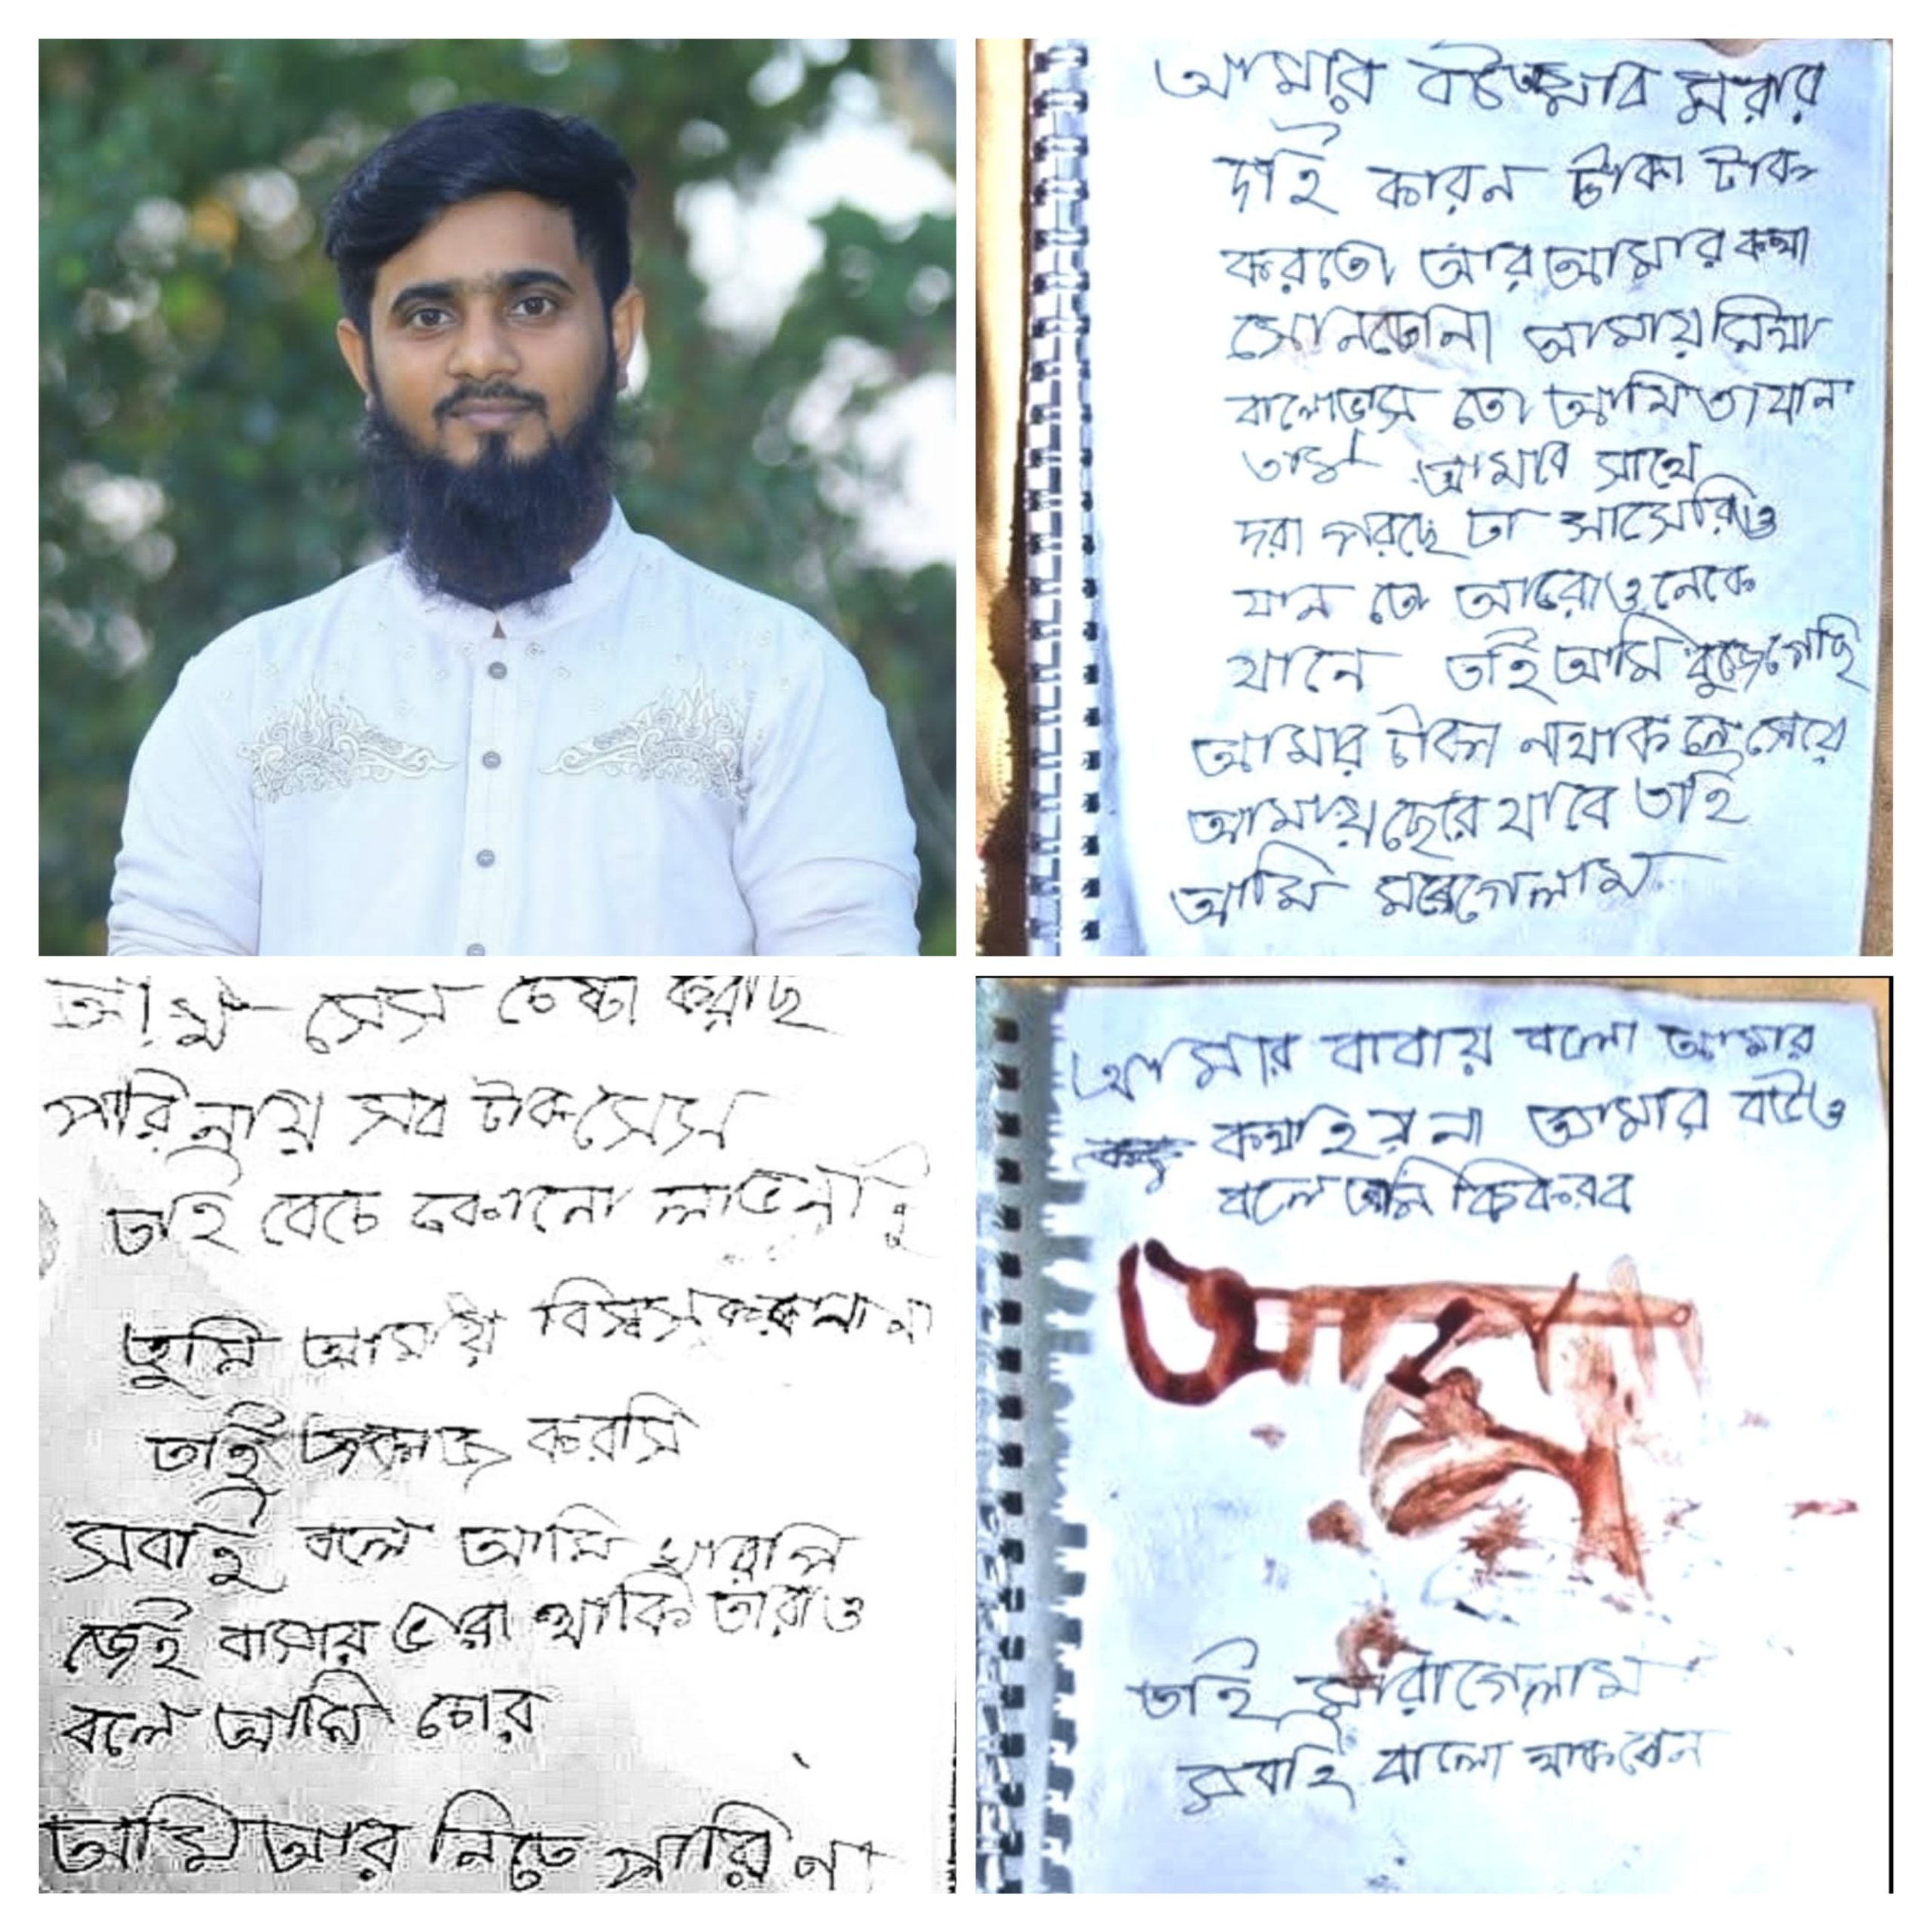 আমার বউআমার মরার
দাই কারন টাকা টাক
করতো আর আমার কথা
সোনতোনা আমায় মিথা
বালোভাস তো আমি তা যান
তাম আমার সাথে
দরা পরছে তা সাসেরিও
যান তো আরোও নেকে
যানে তাই আমি বুজেগেছি
আমার টাকা নাথাকলে সেযে
আমায় ছেরে যাবে তাই
আমি মরেগেলাম
আমি সেস চেষ্টা করছি
পারি নায় সব টাক সেস
তাই বেচে কোনো লাভ নাই
তুমি আমায় বিসাস করলা না
তাই করসি
সবাই বলে আমি খারাপ
জেই বাসায় থাকি তারাও
বলে আমি চোর
আমি আর নিতে পারি না
আমার বাবায় বলো আমার
কথাহিয় না আমার বউও
বলে আমি কিকরব
তাই মারাগেলাম
সবাই বালো থাকবেন